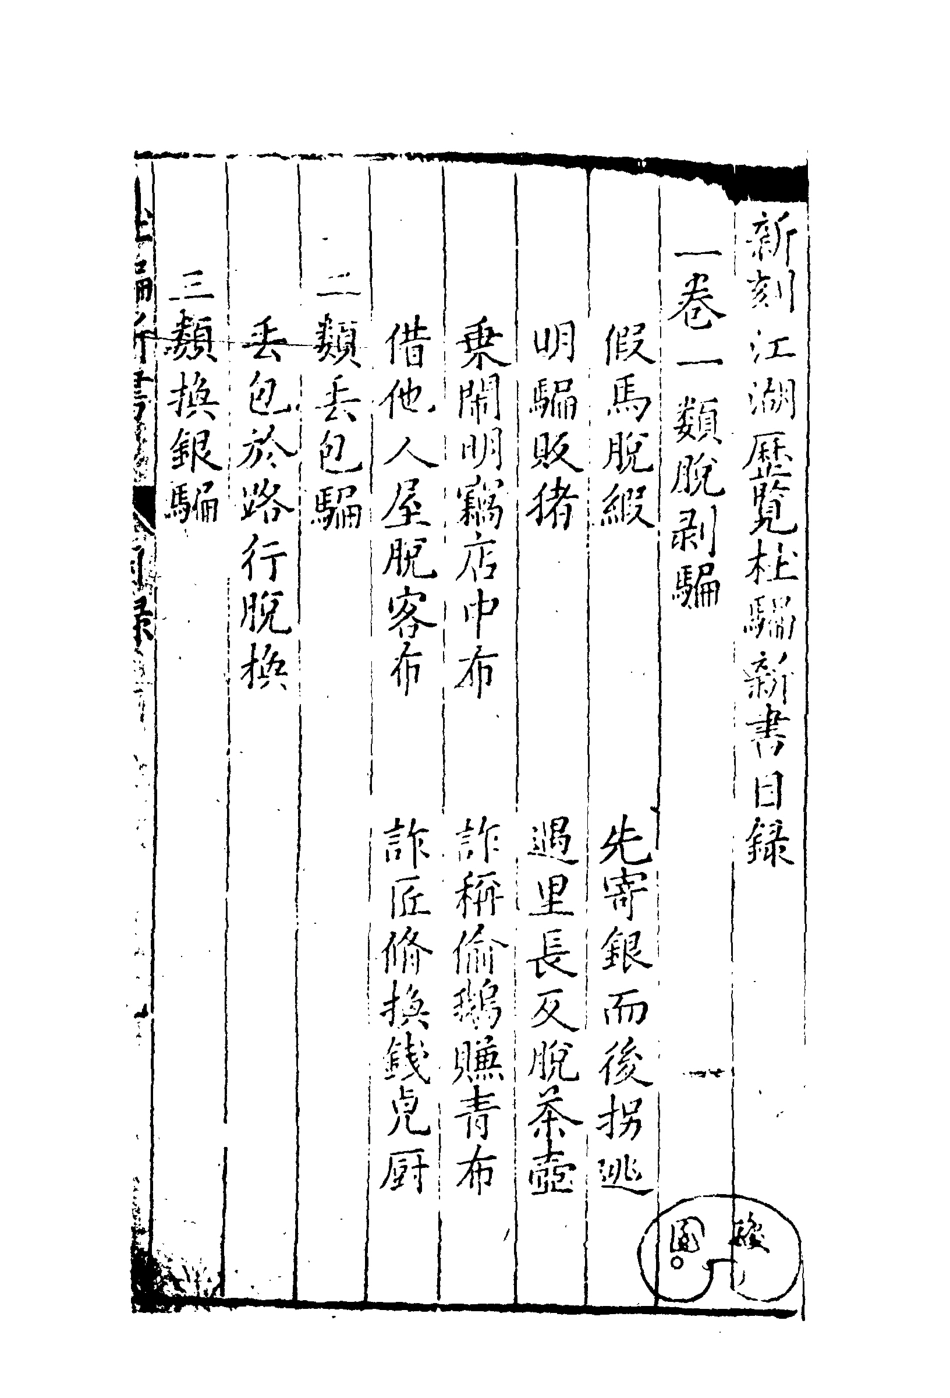 新刻江湖歷覽杜騙新書目録
一卷一類脫剥騙
假馬脫緞　先寄銀而後拐逃
明騙販猪　遇里長反脫茶壺
乗鬧明竊店中布　詐稱偷鵝賺青布
借他人屋脫客布　詐匠脩換錢皃厨
二類丢包騙
丢包於路行脫換
三類換銀騙
杜騙新書
目録